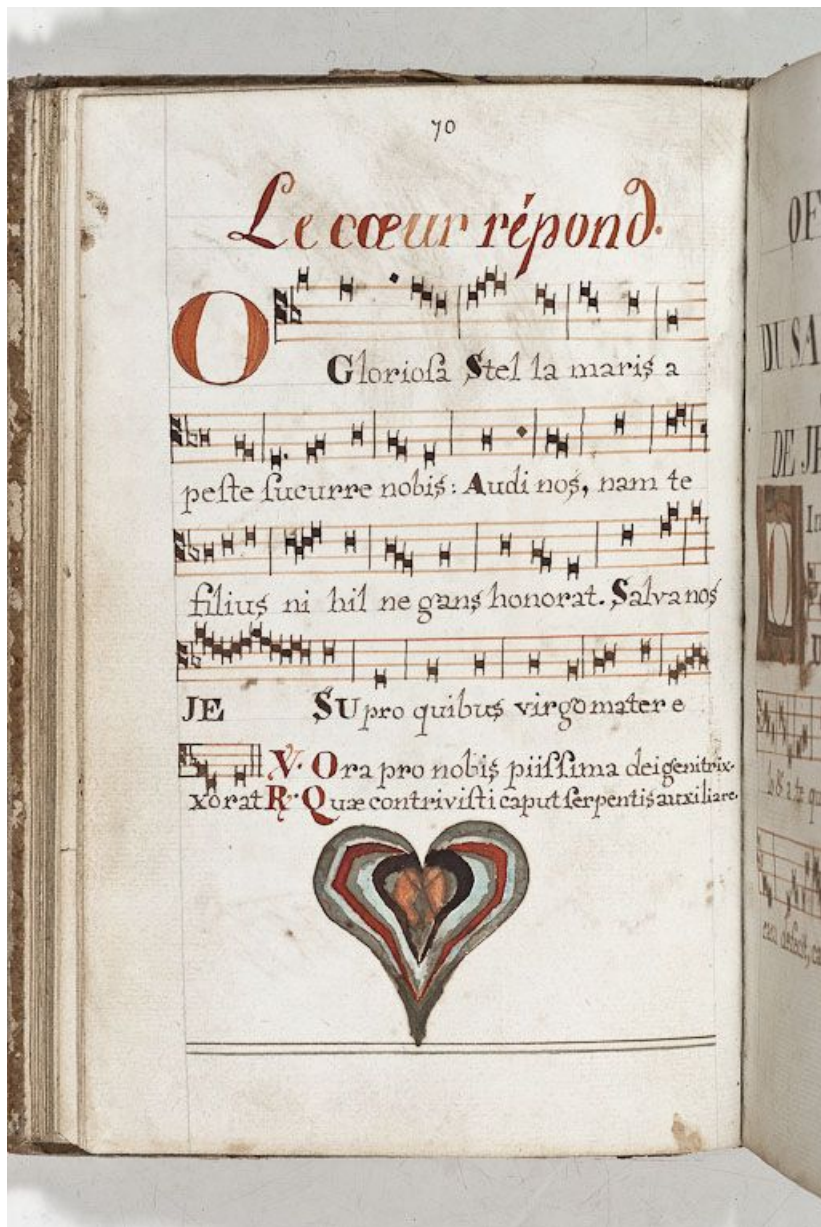 70
Le cœur répond.
O Gloriosa Stel la maris a
peste sucurre nobis: Audi nos, nam te
filius ni hil ne gans honorat. Salva nos
JE SU pro quibus virgo mater e
V. Ora pro nobis piissima dei genitrix.
xorat R. Quæ contrivisti caput serpentis auxiliare.
OF
DU SA
DE JE